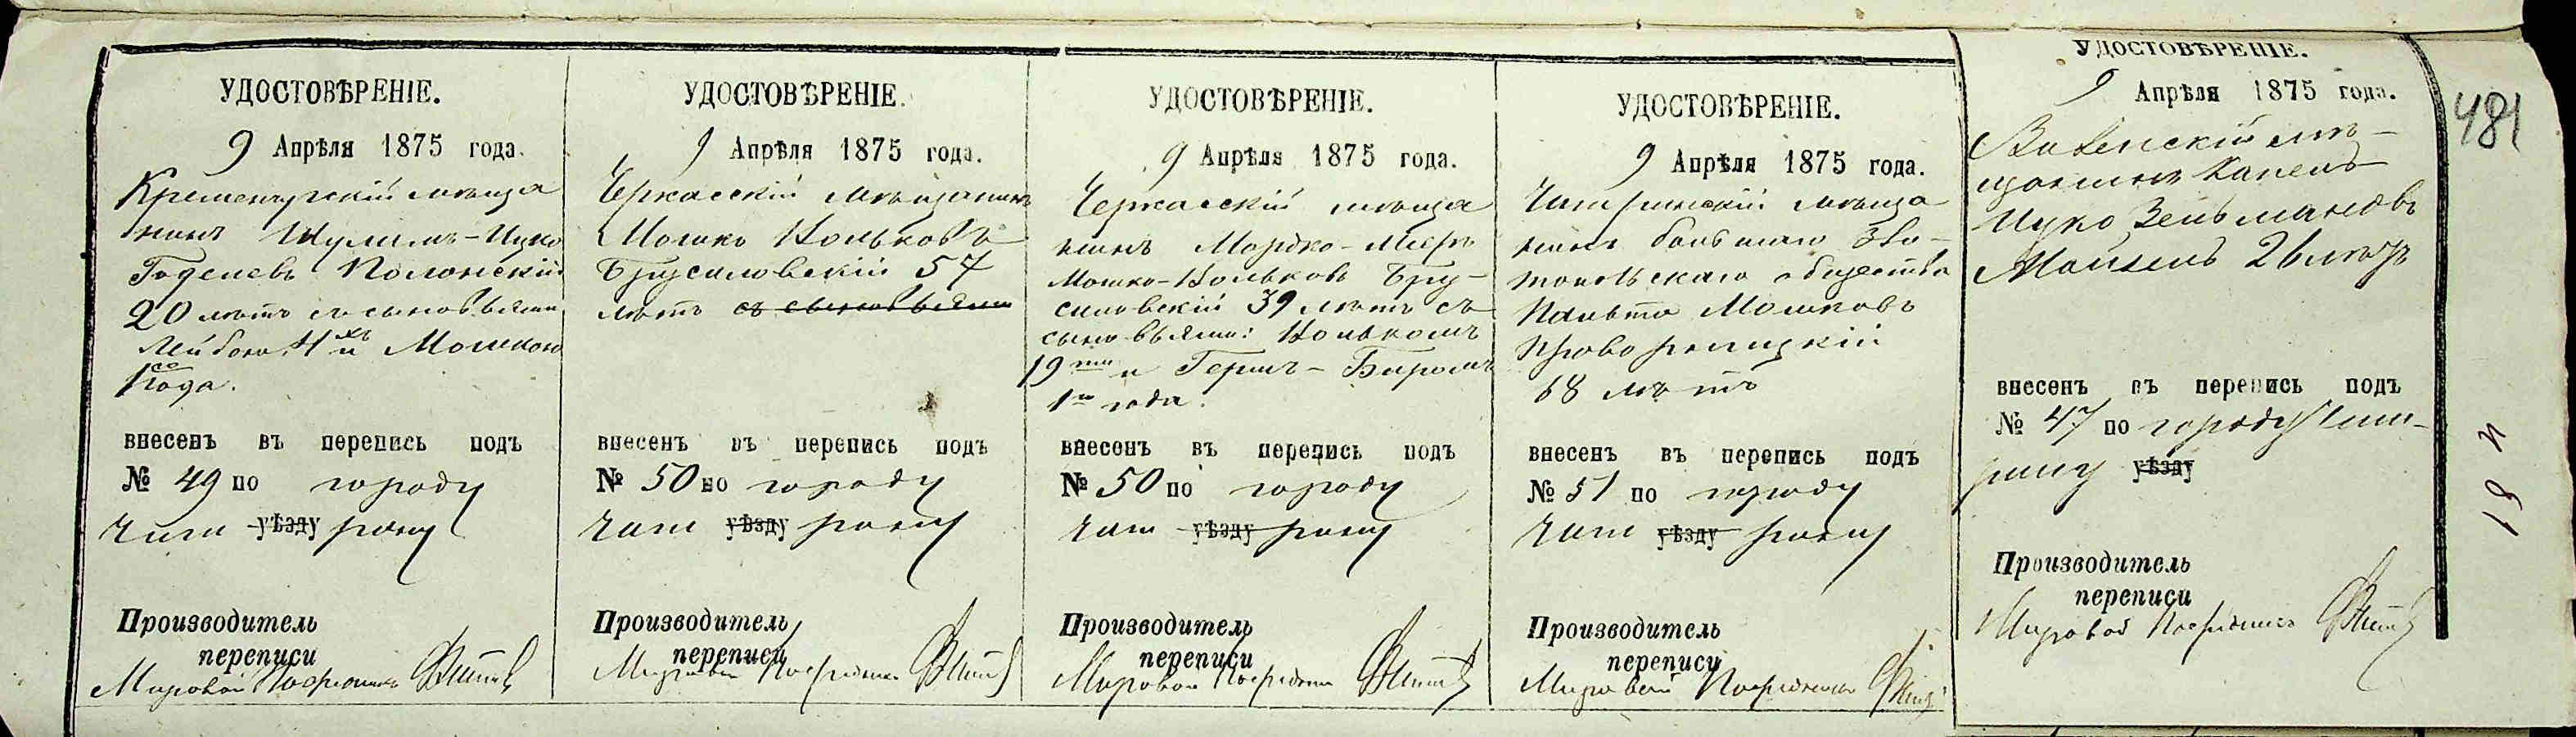 УДОСТОВѢРЕНІЕ.
9 Апрѣля 1875 года.
Кременчугскій мѣща
нинъ Шулимъ-Ицко
Годелевъ Полонскій
20 лѣтъ съ сыновьями
Лейбою 4хъ и Мошкою
1го года.
внесенъ въ перепись подъ
№ 49 по городу
Чиги уѣзду рину
Производитель
переписи
Мировой Посредникъ
УДОСТОВѢРЕНІЕ.
9 Апрѣля 1875 года.
Черкасскій мѣщанинъ
Мошко Вольковъ
Брусиловскій 57
лѣтъ съ сыновьями
внесенъ въ перепись подъ
№ 50 по городу
Чиги уѣзду рину
Производитель
переписи
Мировой Посредникъ
УДОСТОВѢРЕНІЕ.
9 Апрѣля 1875 года.
Черкасскій мѣща
нинъ Мордко-Мееръ
Мошко-Вольковъ Бру-
силовскій 39 лѣтъ съ
сыновьями: Волькомъ
19ти и Герш-Беромъ
1го года.
внесенъ въ перепись подъ
№ 50 по городу
Чиги уѣзду рину
Производитель
переписи
Мировой Посредникъ
УДОСТОВѢРЕНІЕ.
9 Апрѣля 1875 года.
Чигиринскій мѣща
нинъ бывшаго Зла-
топольскаго общества
Пальта Мошковъ
68 лѣтъ
внесенъ въ перепись подъ
№ 51 по городу
Чиги уѣзду рину
Производитель
переписи
Мировой Посредникъ
УДОСТОВѢРЕНІЕ.
9 Апрѣля 1875 года.
Виленскій мѣ-
щанинъ Капель
Ицко Зельмановъ
26 лѣтъ
внесенъ въ перепись подъ
№ 47 по городу Чиги-
рину уѣзду
Производитель
переписи
Мировой Посредникъ
481